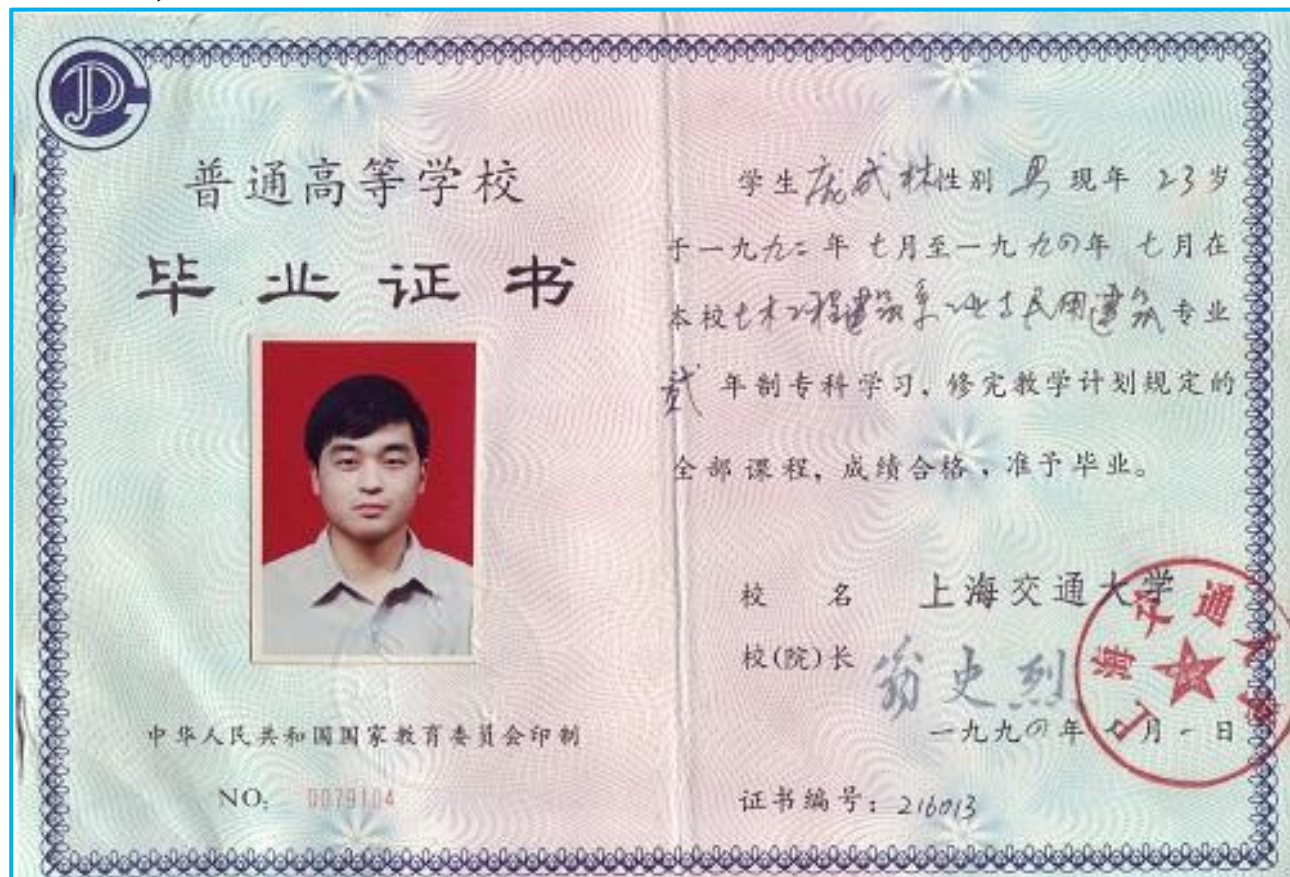 普通高等学校
毕业证书
中华人民共和国国家教育委员会印制
NO: 0079104
学生庞成林性别 男 现年 23岁
于一九九二年 七月至一九九四年 七月在
本校土木工程建筑系工业与民用建筑专业
贰 年制专科学习,修完教学计划规定的
全部课程,成绩合格,准予毕业。
校 名 上海交通大学
校(院)长 翁史烈
一九九四年 七月一日
证书编号:216013
上海交通大学